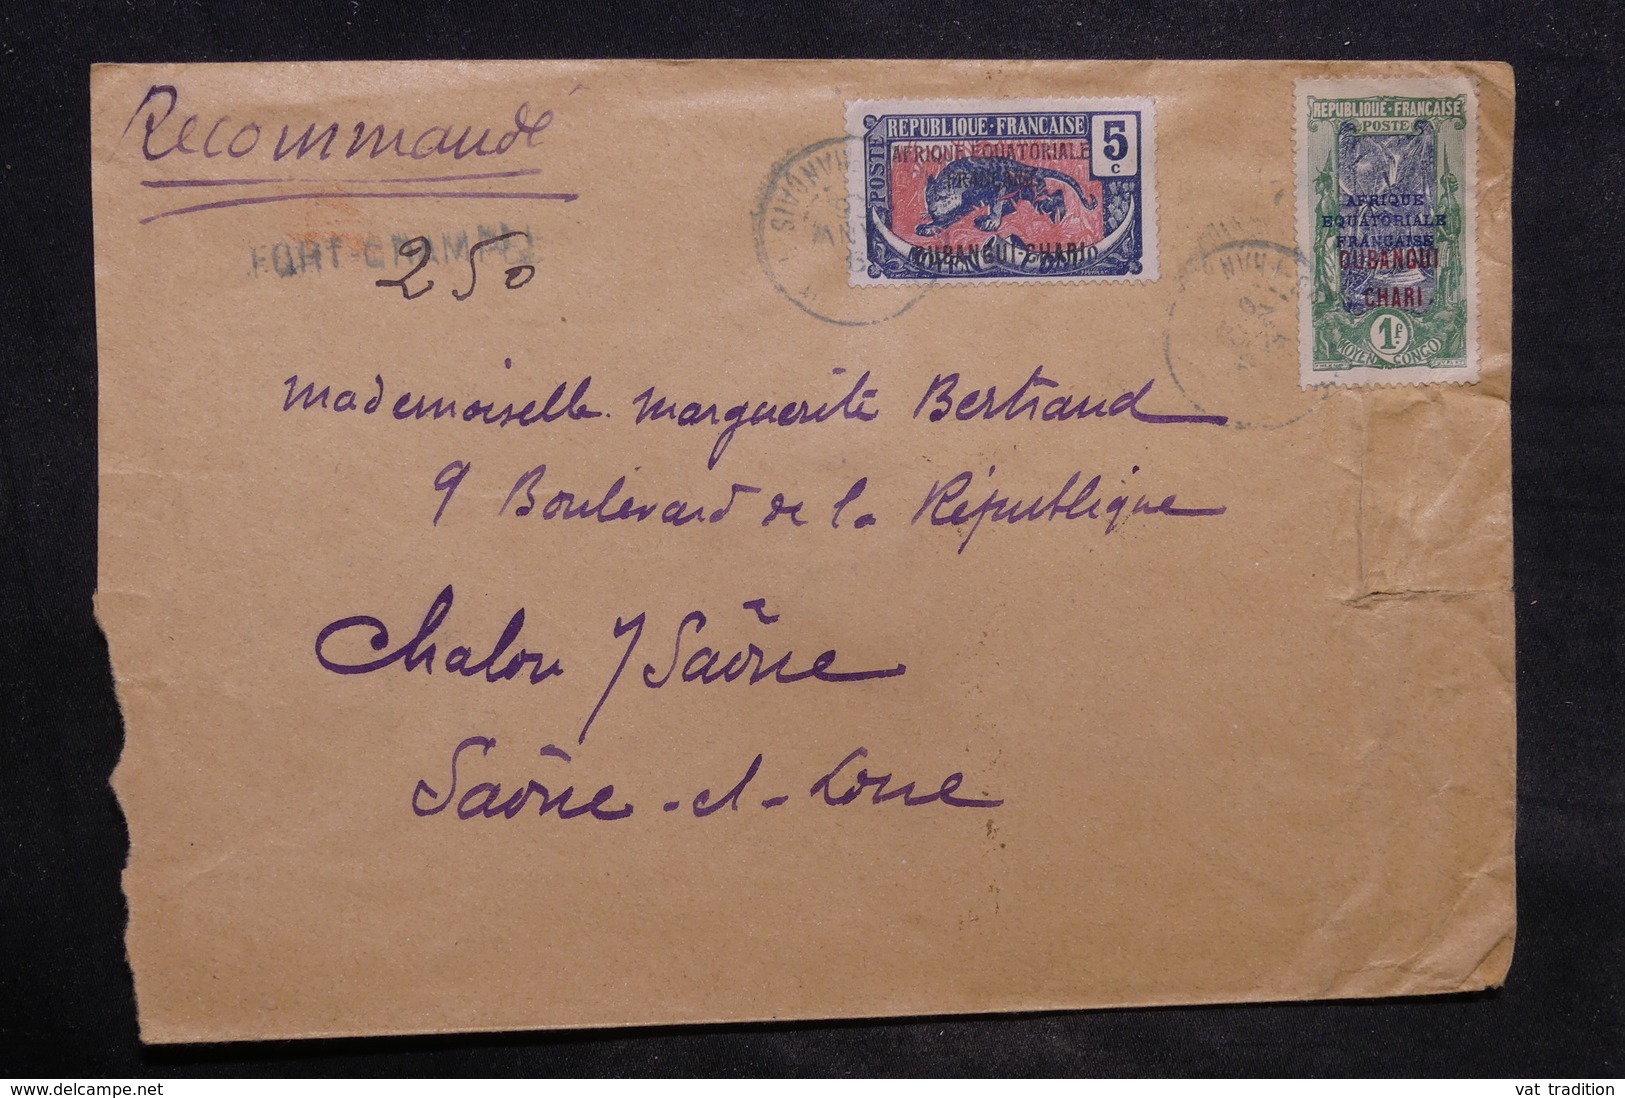 Recommandé
FORT-CRAMPEL
250
REPUBLIQUE·FRANÇAISE
POSTE
5
c
AFRIQUE EQUATORIALE
FRANÇAISE
OUBANGUI-CHARI
REPUBLIQUE·FRANÇAISE
POSTE
AFRIQUE
EQUATORIALE
FRANÇAISE
OUBANGUI
CHARI
1F
MOYEN CONGO
Mademoiselle Marguerite Bertrand
9 Boulevard de la République
Chalon s/ Saône
Saône-et-Loire
delcampe.net
vat tradition